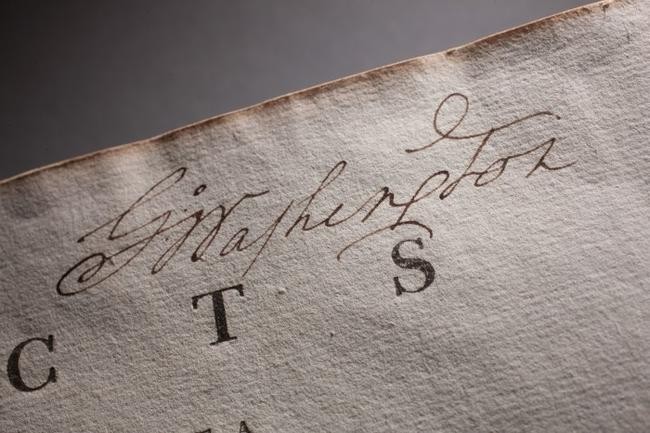 G:Washington
C T S